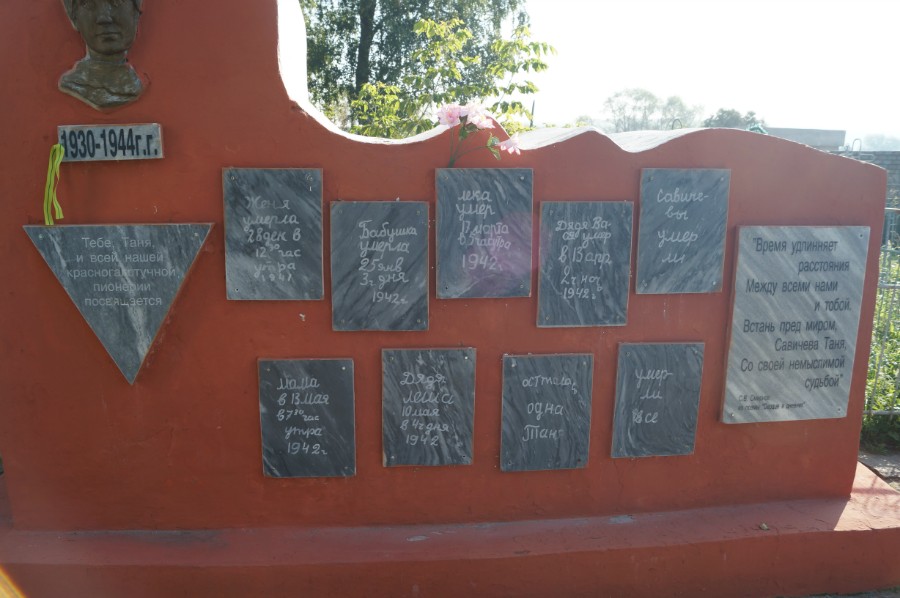 1930-1944г.г.
Тебе, Таня,
и всей нашей
красногалстучной
пионерии
посвящается
Женя
умерла
28 ден в
12 30 час
утра
1941
Бабушка
умерла
25 янв
3 ч дня
1942 г
лека
умер
17 марта
в 5 час утра
1942 г
Дядя Ва-
ся умер
в 13 апр
2 ч ноч
1942 г
савиче-
вы
умер
ли
мама
в 13 мая
в 7 30 час
утра
1942 г
Дядя
леша
10 мая
в 4 ч дня
1942
осталась
одна
Таня
умер-
ли
все
"Время удлинняет
расстояния
Между всеми нами
и тобой.
Встань пред миром,
Савичева Таня,
Со своей немыслимой
судьбой"
С.В. Смирнов
из поэмы "Сердце и дневник"